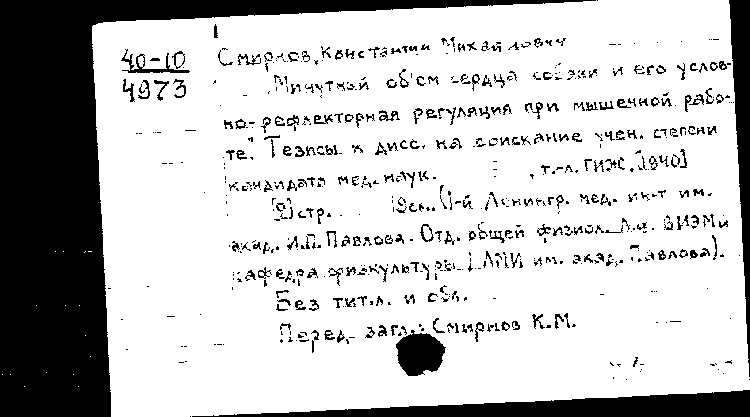 40-10
4973
Смирнов, Константин Михайлович
Минутный об'ем сердца собаки и его услов-
но-рефлекторная регуляция при мышечной рабо-
те". Тезисы к дисс. на соискание учен. степени
кандидата мед. наук. , т.-л. ГИЖ. [1940]
[2] стр. 19см. (1-й Ленингр. мед. ин-т им.
акад. И.П. Павлова. Отд. общей физиол. Л.Ф. ВИЭМ и
кафедра физкультуры 1 ЛМИ им. акад. Павлова).
Без тит.л. и обл.
Перед загл.: Смирнов К.М.